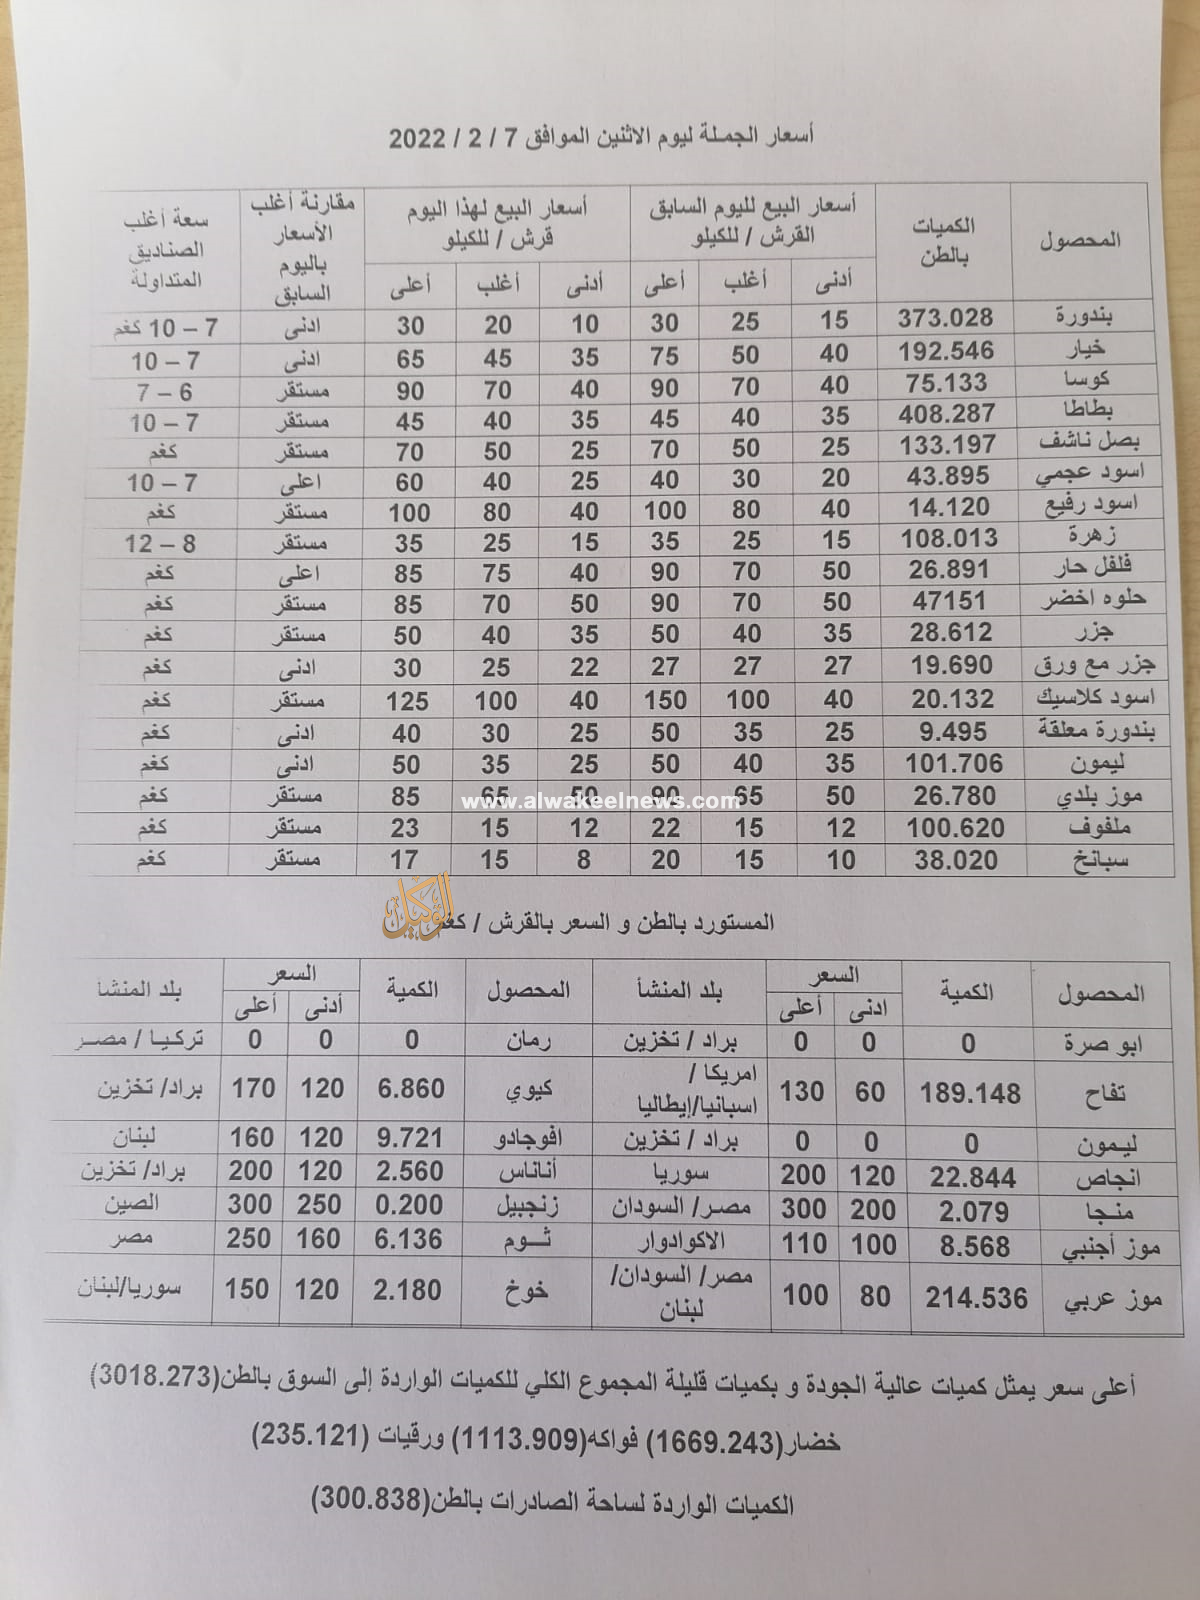 أسعار الجملة ليوم الاثنين الموافق 7 / 2 / 2022
المحصول الكميات بالطن أسعار البيع لليوم السابق القرش / للكيلو أسعار البيع لهذا اليوم قرش / للكيلو مقارنة أغلب الأسعار باليوم السابق سعة أغلب الصناديق المتداولة
أدنى أغلب أعلى أدنى أغلب أعلى
بندورة 373.028 15 25 30 10 20 30 ادنى 7 – 10 كغم
خيار 192.546 40 50 75 35 45 65 أدنى 7 – 10
كوسا 75.133 40 70 90 40 70 90 مستقر 6 – 7
بطاطا 408.287 35 40 45 35 40 45 مستقر 7 – 10
بصل ناشف 133.197 25 50 70 25 50 70 مستقر كغم
اسود عجمي 43.895 20 30 40 25 40 60 اعلى 7 – 10
اسود رفيع 14.120 40 80 100 40 80 100 مستقر كغم
زهرة 108.013 15 25 35 15 25 35 مستقر 8 – 12
فلفل حار 26.891 50 70 90 40 75 85 اعلى كغم
حلوه اخضر 47151 50 70 90 50 70 85 مستقر كغم
جزر 28.612 35 40 50 35 40 50 مستقر كغم
جزر مع ورق 19.690 27 27 27 22 25 30 ادنى كغم
اسود كلاسيك 20.132 40 100 150 40 100 125 مستقر كغم
بندورة معلقة 9.495 25 35 50 25 30 40 ادنى كغم
ليمون 101.706 35 40 50 25 35 50 ادنى كغم
موز بلدي 26.780 50 65 90 50 65 85 مستقر كغم
www.alwakeelnews.com
ملفوف 100.620 12 15 22 12 15 23 مستقر كغم
سبانخ 38.020 10 15 20 8 15 17 مستقر كغم
المستورد بالطن و السعر بالقرش / كغم
الوكيل
المحصول الكمية السعر بلد المنشأ المحصول الكمية السعر بلد المنشأ
ادنى أعلى أدنى أعلى
ابو صرة 0 0 0 براد / تخزين رمان 0 0 0 تركيا / مصر
تفاح 189.148 60 130 امريكا / اسبانيا/إيطاليا كيوي 6.860 120 170 براد/ تخزين
ليمون 0 0 0 براد / تخزين افوجادو 9.721 120 160 لبنان
انجاص 22.844 120 200 سوريا أناناس 2.560 120 200 براد/ تخزين
منجا 2.079 200 300 مصر/ السودان زنجبيل 0.200 250 300 الصين
موز أجنبي 8.568 100 110 الاكوادوار ثوم 6.136 160 250 مصر
موز عربي 214.536 80 100 مصر/ السودان/ لبنان خوخ 2.180 120 150 سوريا/لبنان
أعلى سعر يمثل كميات عالية الجودة و بكميات قليلة المجموع الكلي للكميات الواردة إلى السوق بالطن(3018.273)
خضار(1669.243) فواكه(1113.909) ورقيات (235.121)
الكميات الواردة لساحة الصادرات بالطن(300.838)